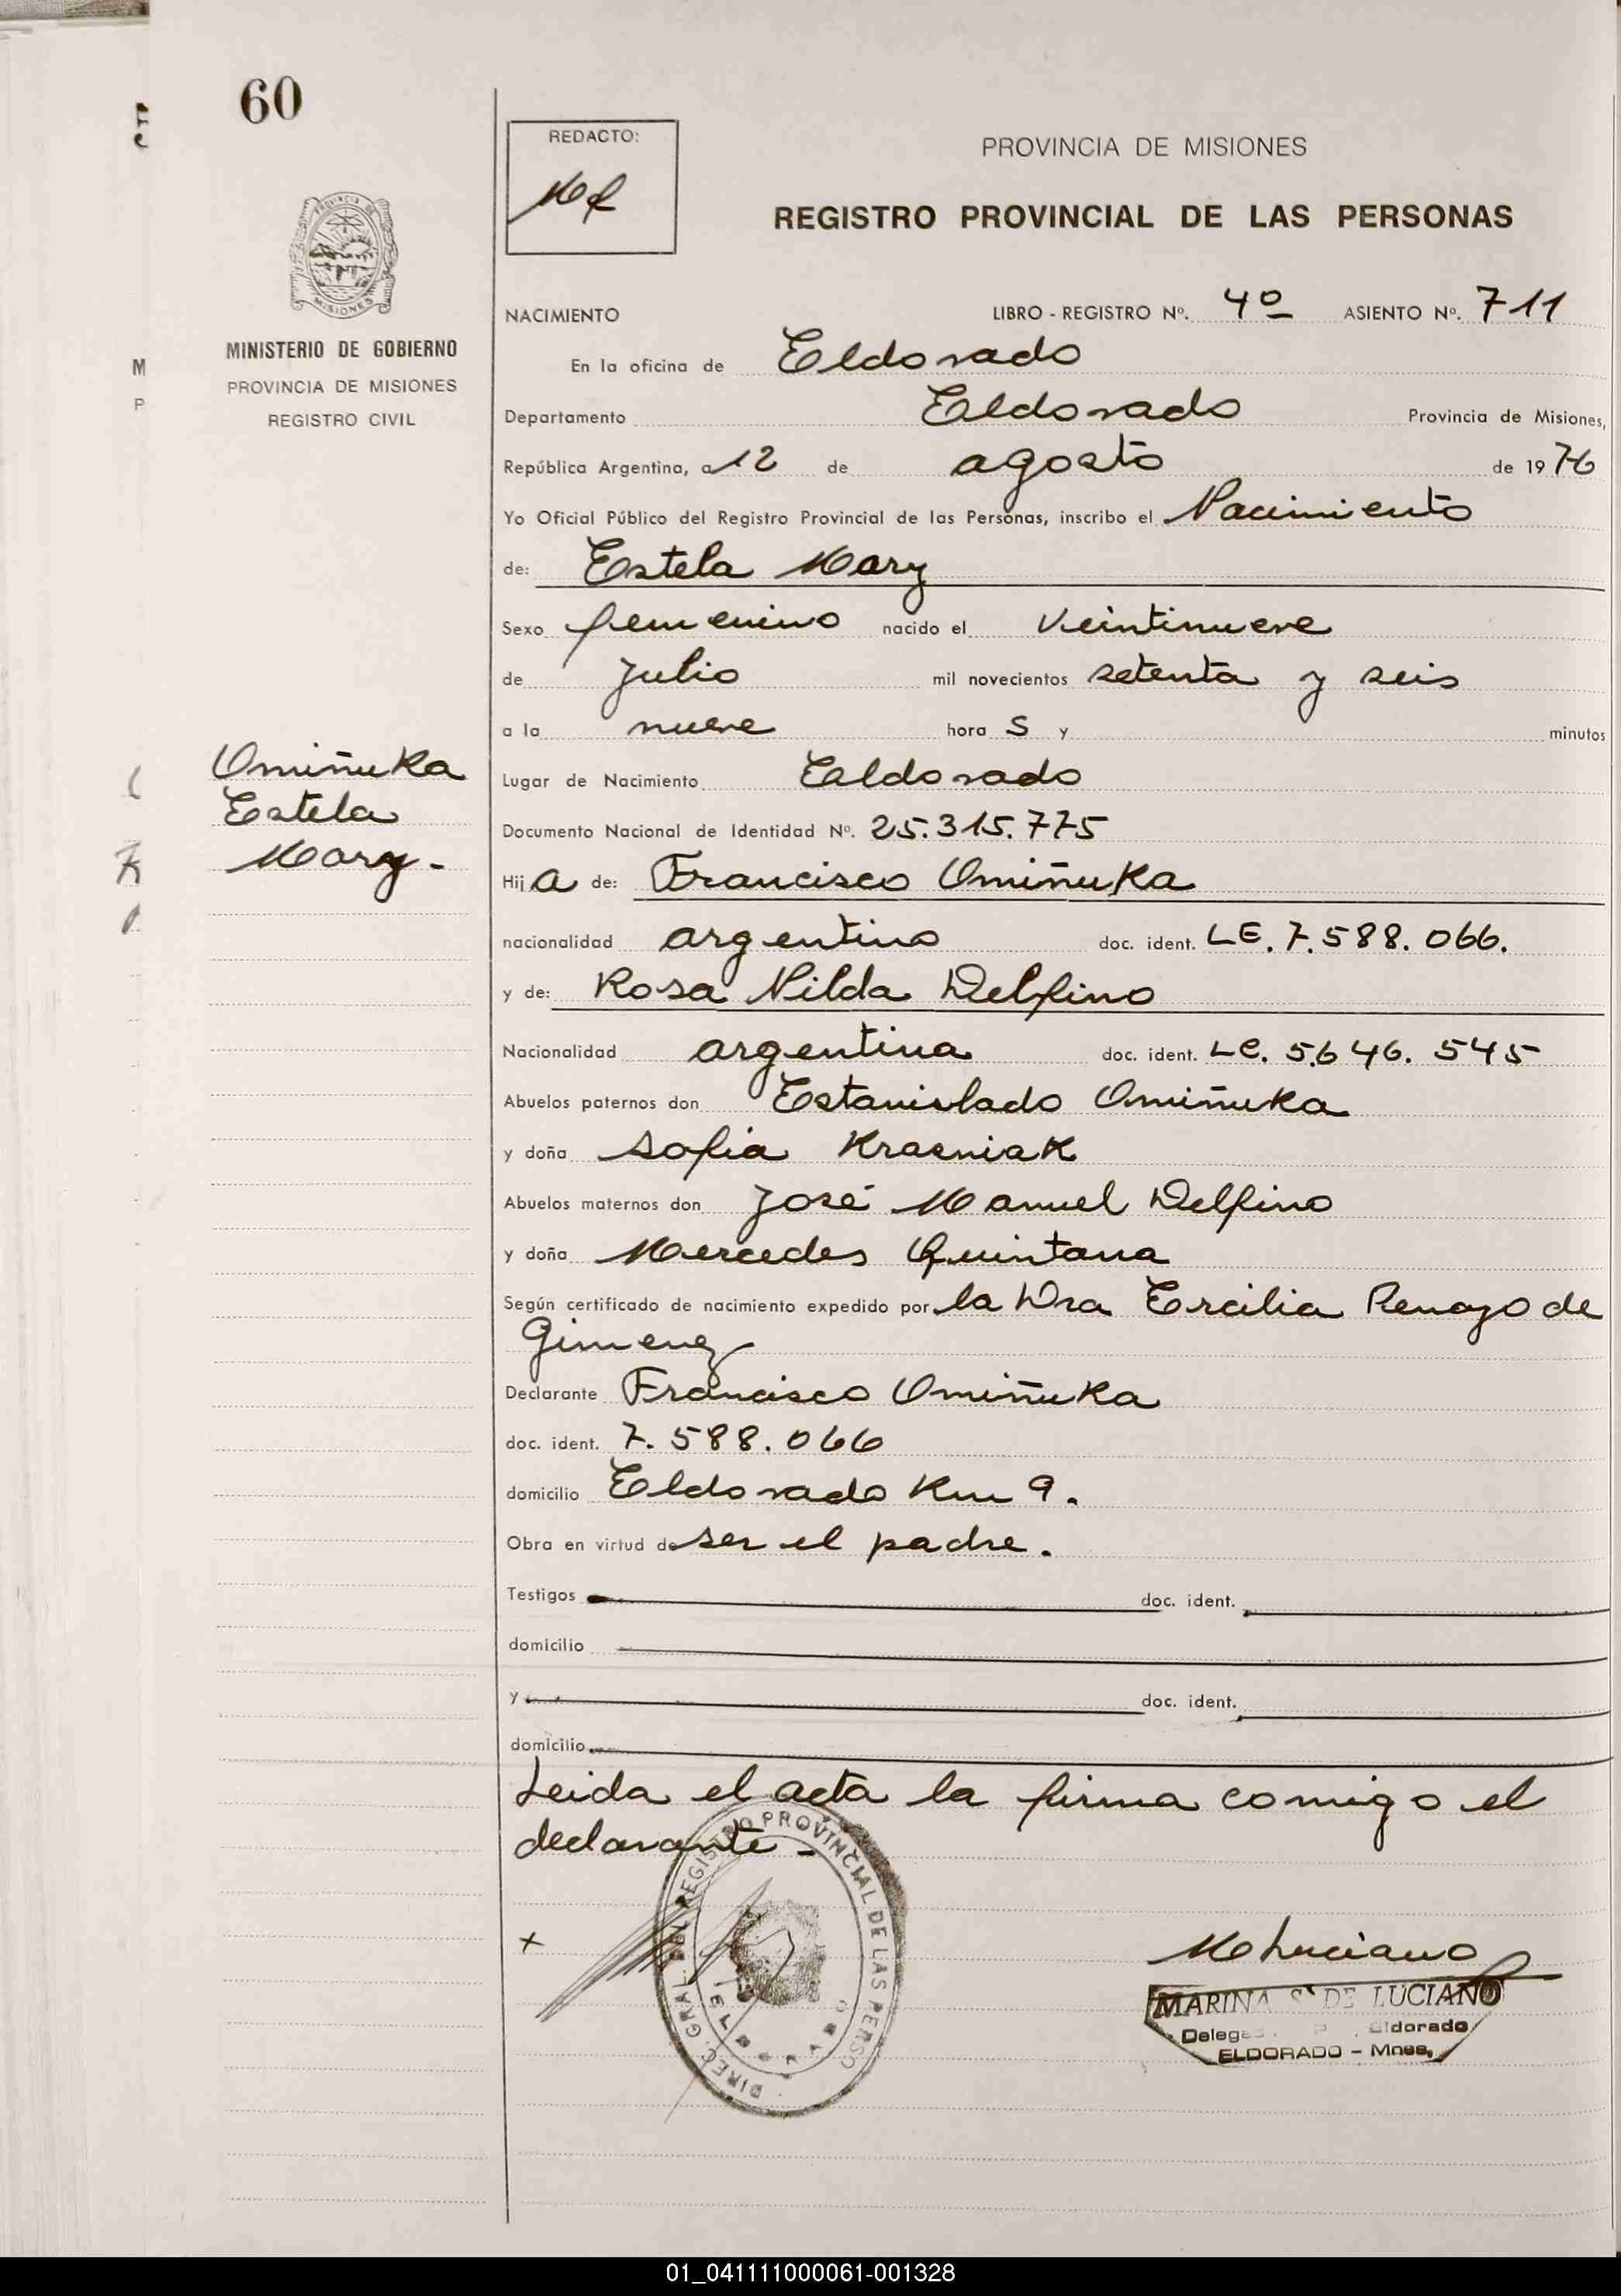 60
REDACTO:
PROVINCIA DE MISIONES
REGISTRO PROVINCIAL DE LAS PERSONAS
PROVINCIA DE
MISIONES
MINISTERIO DE GOBIERNO
PROVINCIA DE MISIONES
REGISTRO CIVIL
NACIMIENTO LIBRO - REGISTRO Nº. 4º ASIENTO Nº. 711
En la oficina de Eldorado
Departamento Eldorado Provincia de Misiones,
República Argentina, a 12 de agosto de 1976
Yo Oficial Público del Registro Provincial de las Personas, inscribo el Nacimiento
de: Estela Mary
Sexo femenino nacido el veintinueve
de Julio mil novecientos setenta y seis
a la nueve hora s y minutos
Omiñuka
Estela
Mary -
Lugar de Nacimiento Eldorado
Documento Nacional de Identidad Nº. 25.315.775
Hij a de: Francisco Omiñuka
nacionalidad argentino doc. ident. LE. 7.588.066.
y de: Rosa Nilda Delfino
Nacionalidad argentina doc. ident. LC. 5.646.545
Abuelos paternos don Estanislado Omiñuka
y doña Sofia Krasniak
Abuelos maternos don José Manuel Delfino
y doña Mercedes Quintana
Según certificado de nacimiento expedido por la Dra Ercilia Penayo de
Gimenez
Declarante Francisco Omiñuka
doc. ident. 7.588.066
domicilio Eldorado Km 9.
Obra en virtud de ser el padre.
Testigos doc. ident.
domicilio
y doc. ident.
domicilio
Leida el acta la firma comigo el
declarante -
DIREC. GRAL. DEL REGISTRO PROVINCIAL DE LAS PERSO
ELDORADO
x
M Luciano
MARINA S. DE LUCIANO
Eldorado
ELDORADO - Mnes,
01_041111000061-001328